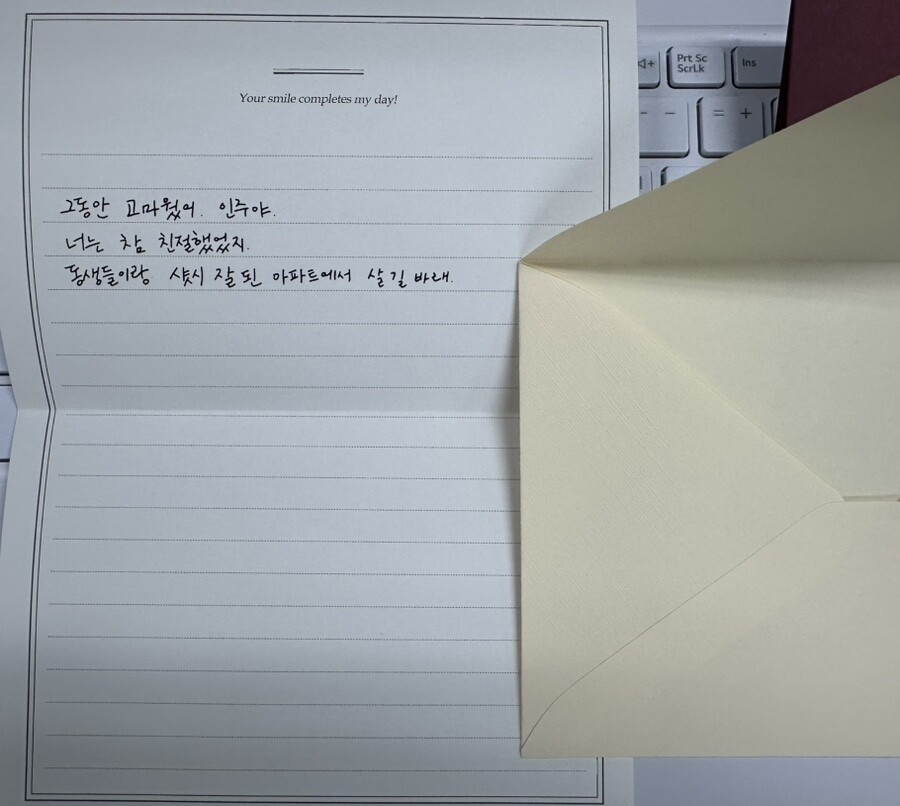 Your smile completes my day!
Prt Sc
ScrLk
Ins
+
- -
= +
그동안 고마웠어. 인주야.
너는 참 친절했었지.
동생들이랑 샷시 잘 된 아파트에서 살길 바래.